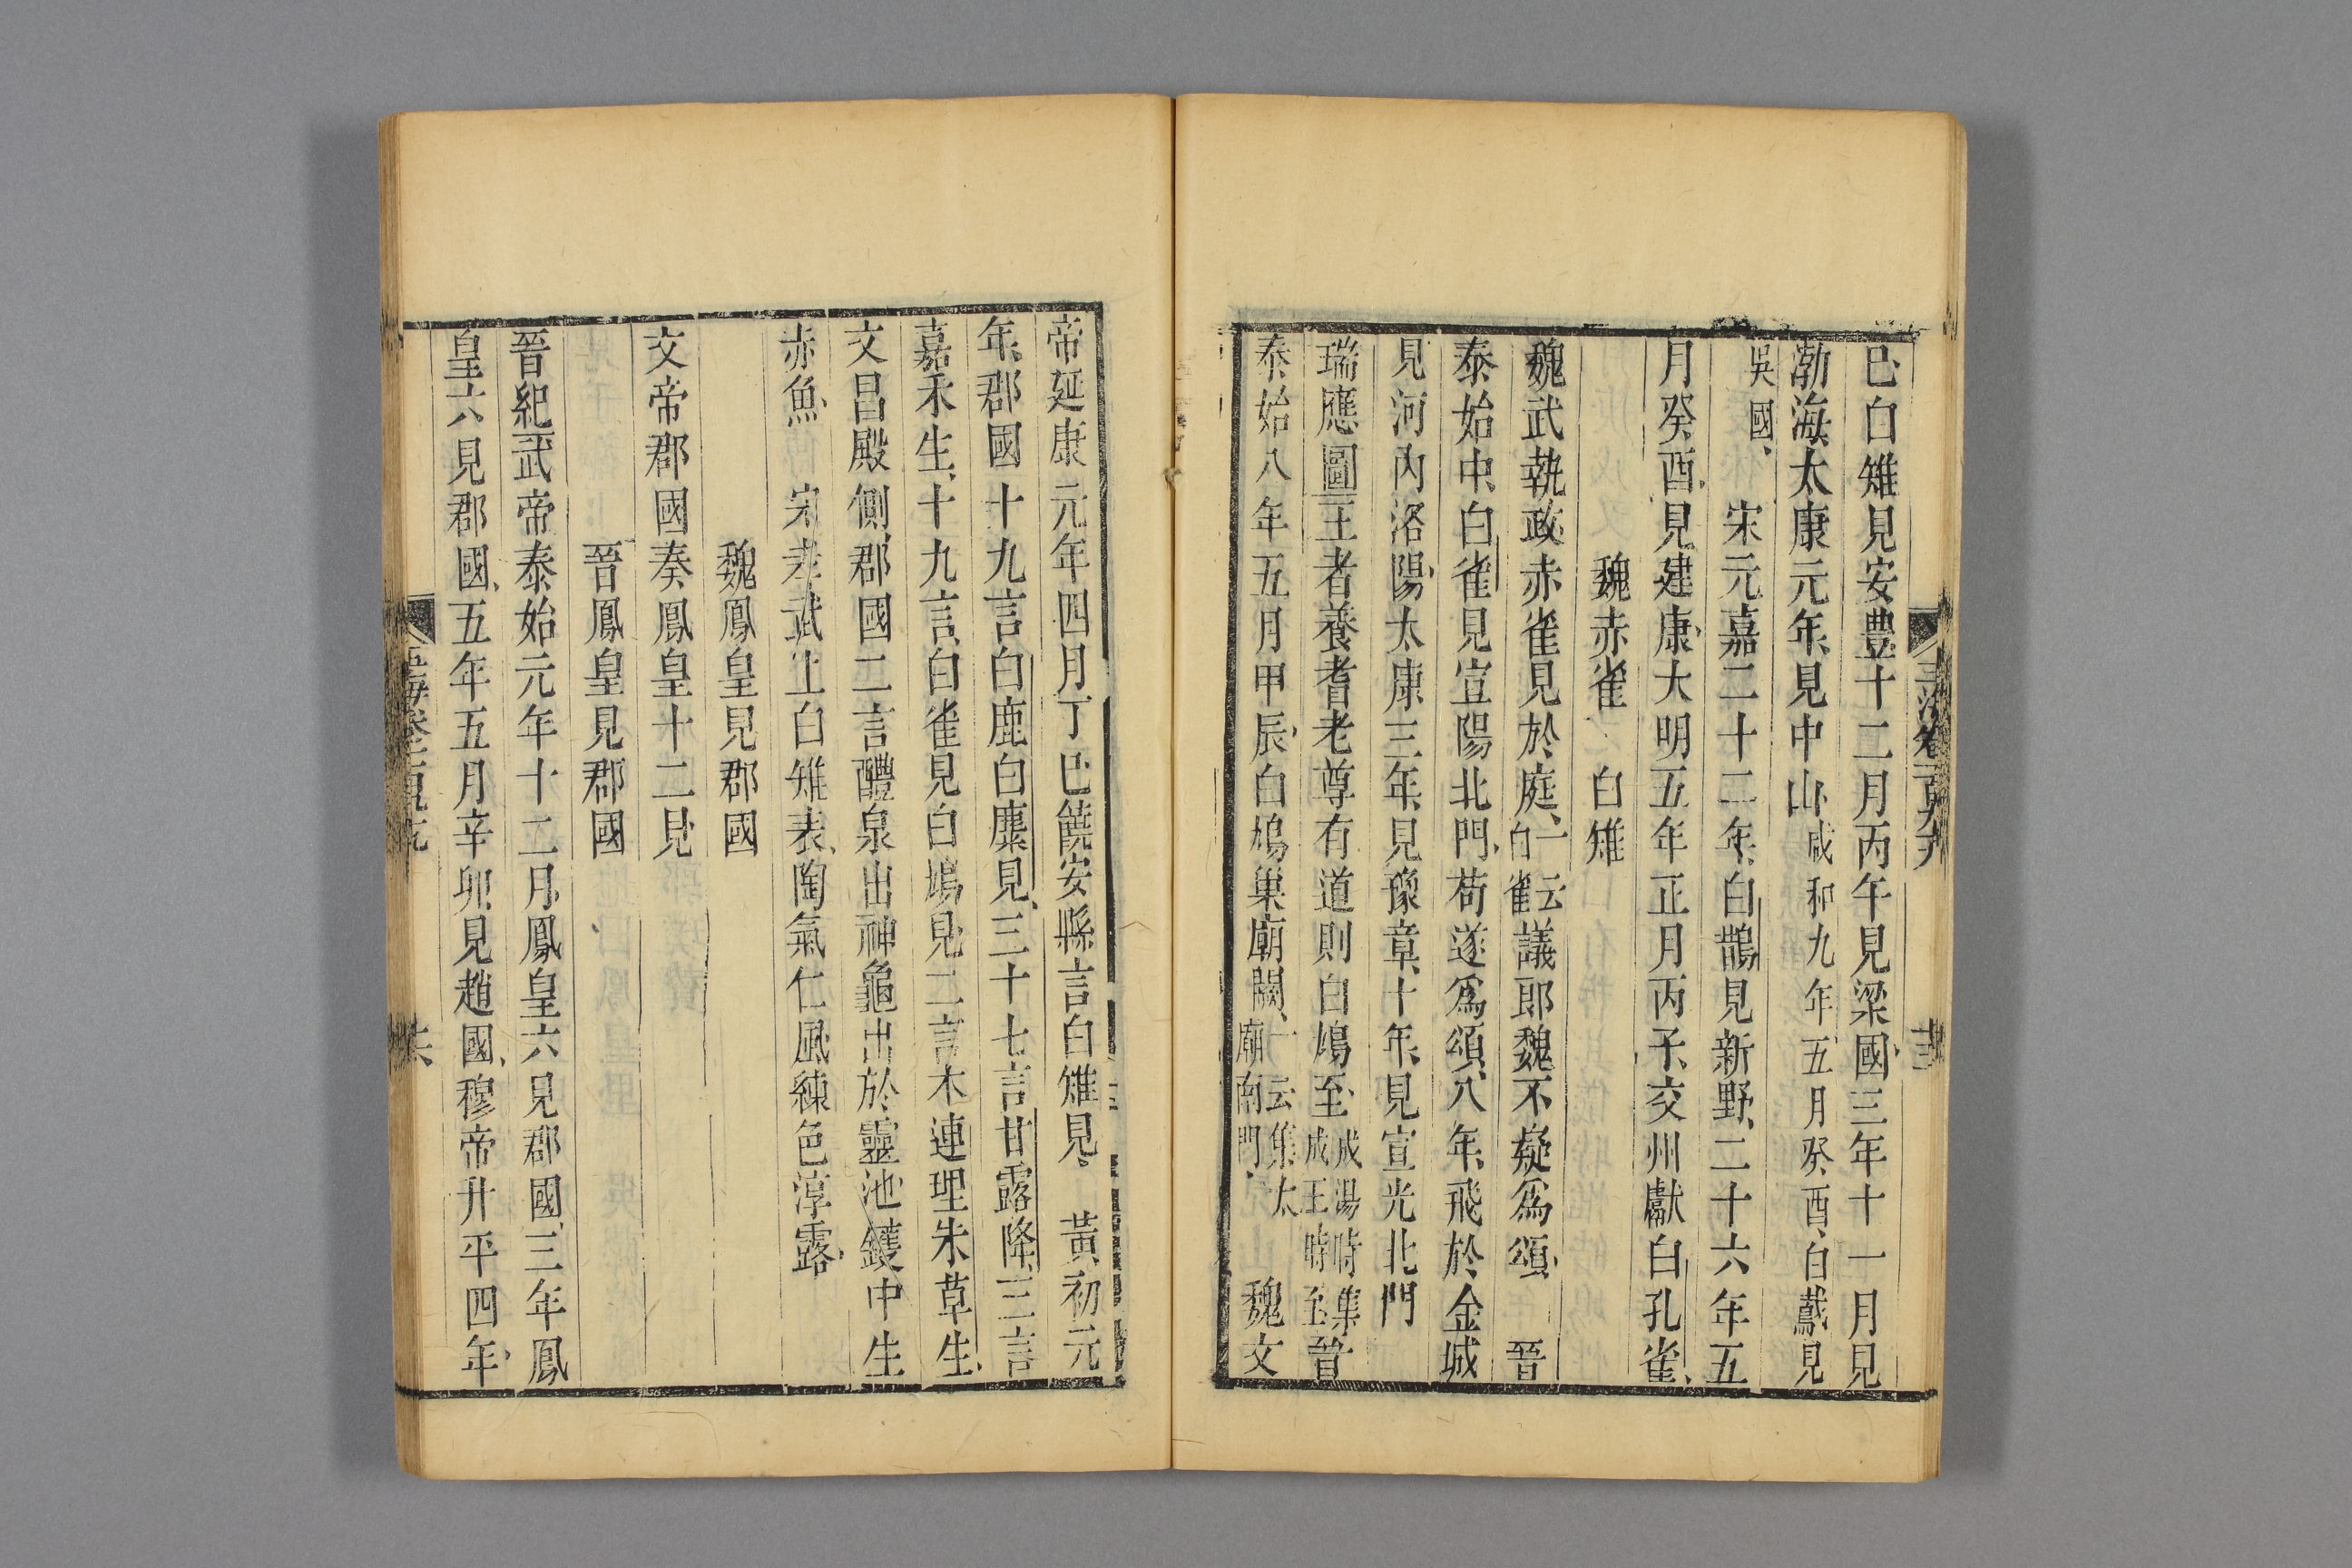 巳白雉見安豊十二月丙午見梁國三年十一月見
渤海太康元年見中山咸和九年五月癸酉白鷰見
吳國宋元嘉二十二年白鵲見新野二十六年五
月癸酉見建康大明五年正月丙子交州獻白孔雀
魏赤雀 白雉
魏武執政赤雀見於庭一云白雀議郎魏不疑爲頌 晉
泰始中白雀見宣陽北門荀遂爲頌八年飛於金城
見河內洛陽太康三年見豫章十年見宣光北門
瑞應圖王者養耆老尊有道則白鳩至成湯時集成王時至晉
泰始八年五月甲辰白鳩巢廟闕一云集太廟南門 魏文
帝延康元年四月丁巳饒安縣言白雉見 黃初元
年郡國十九言白鹿白麞見三十七言甘露降三言
嘉禾生十九言白雀見白鳩見二言木連理朱草生
文昌殿側郡國二言醴泉出神龜出於靈池鑊中生
赤魚 宋孝武上白雉表陶氣仁風練色淳露
魏鳳皇見郡國
文帝郡國奏鳳皇十二見
晉鳳皇見郡國
晉紀武帝泰始元年十二月鳳皇六見郡國三年鳳
皇六見郡國五年五月辛卯見趙國穆帝升平四年